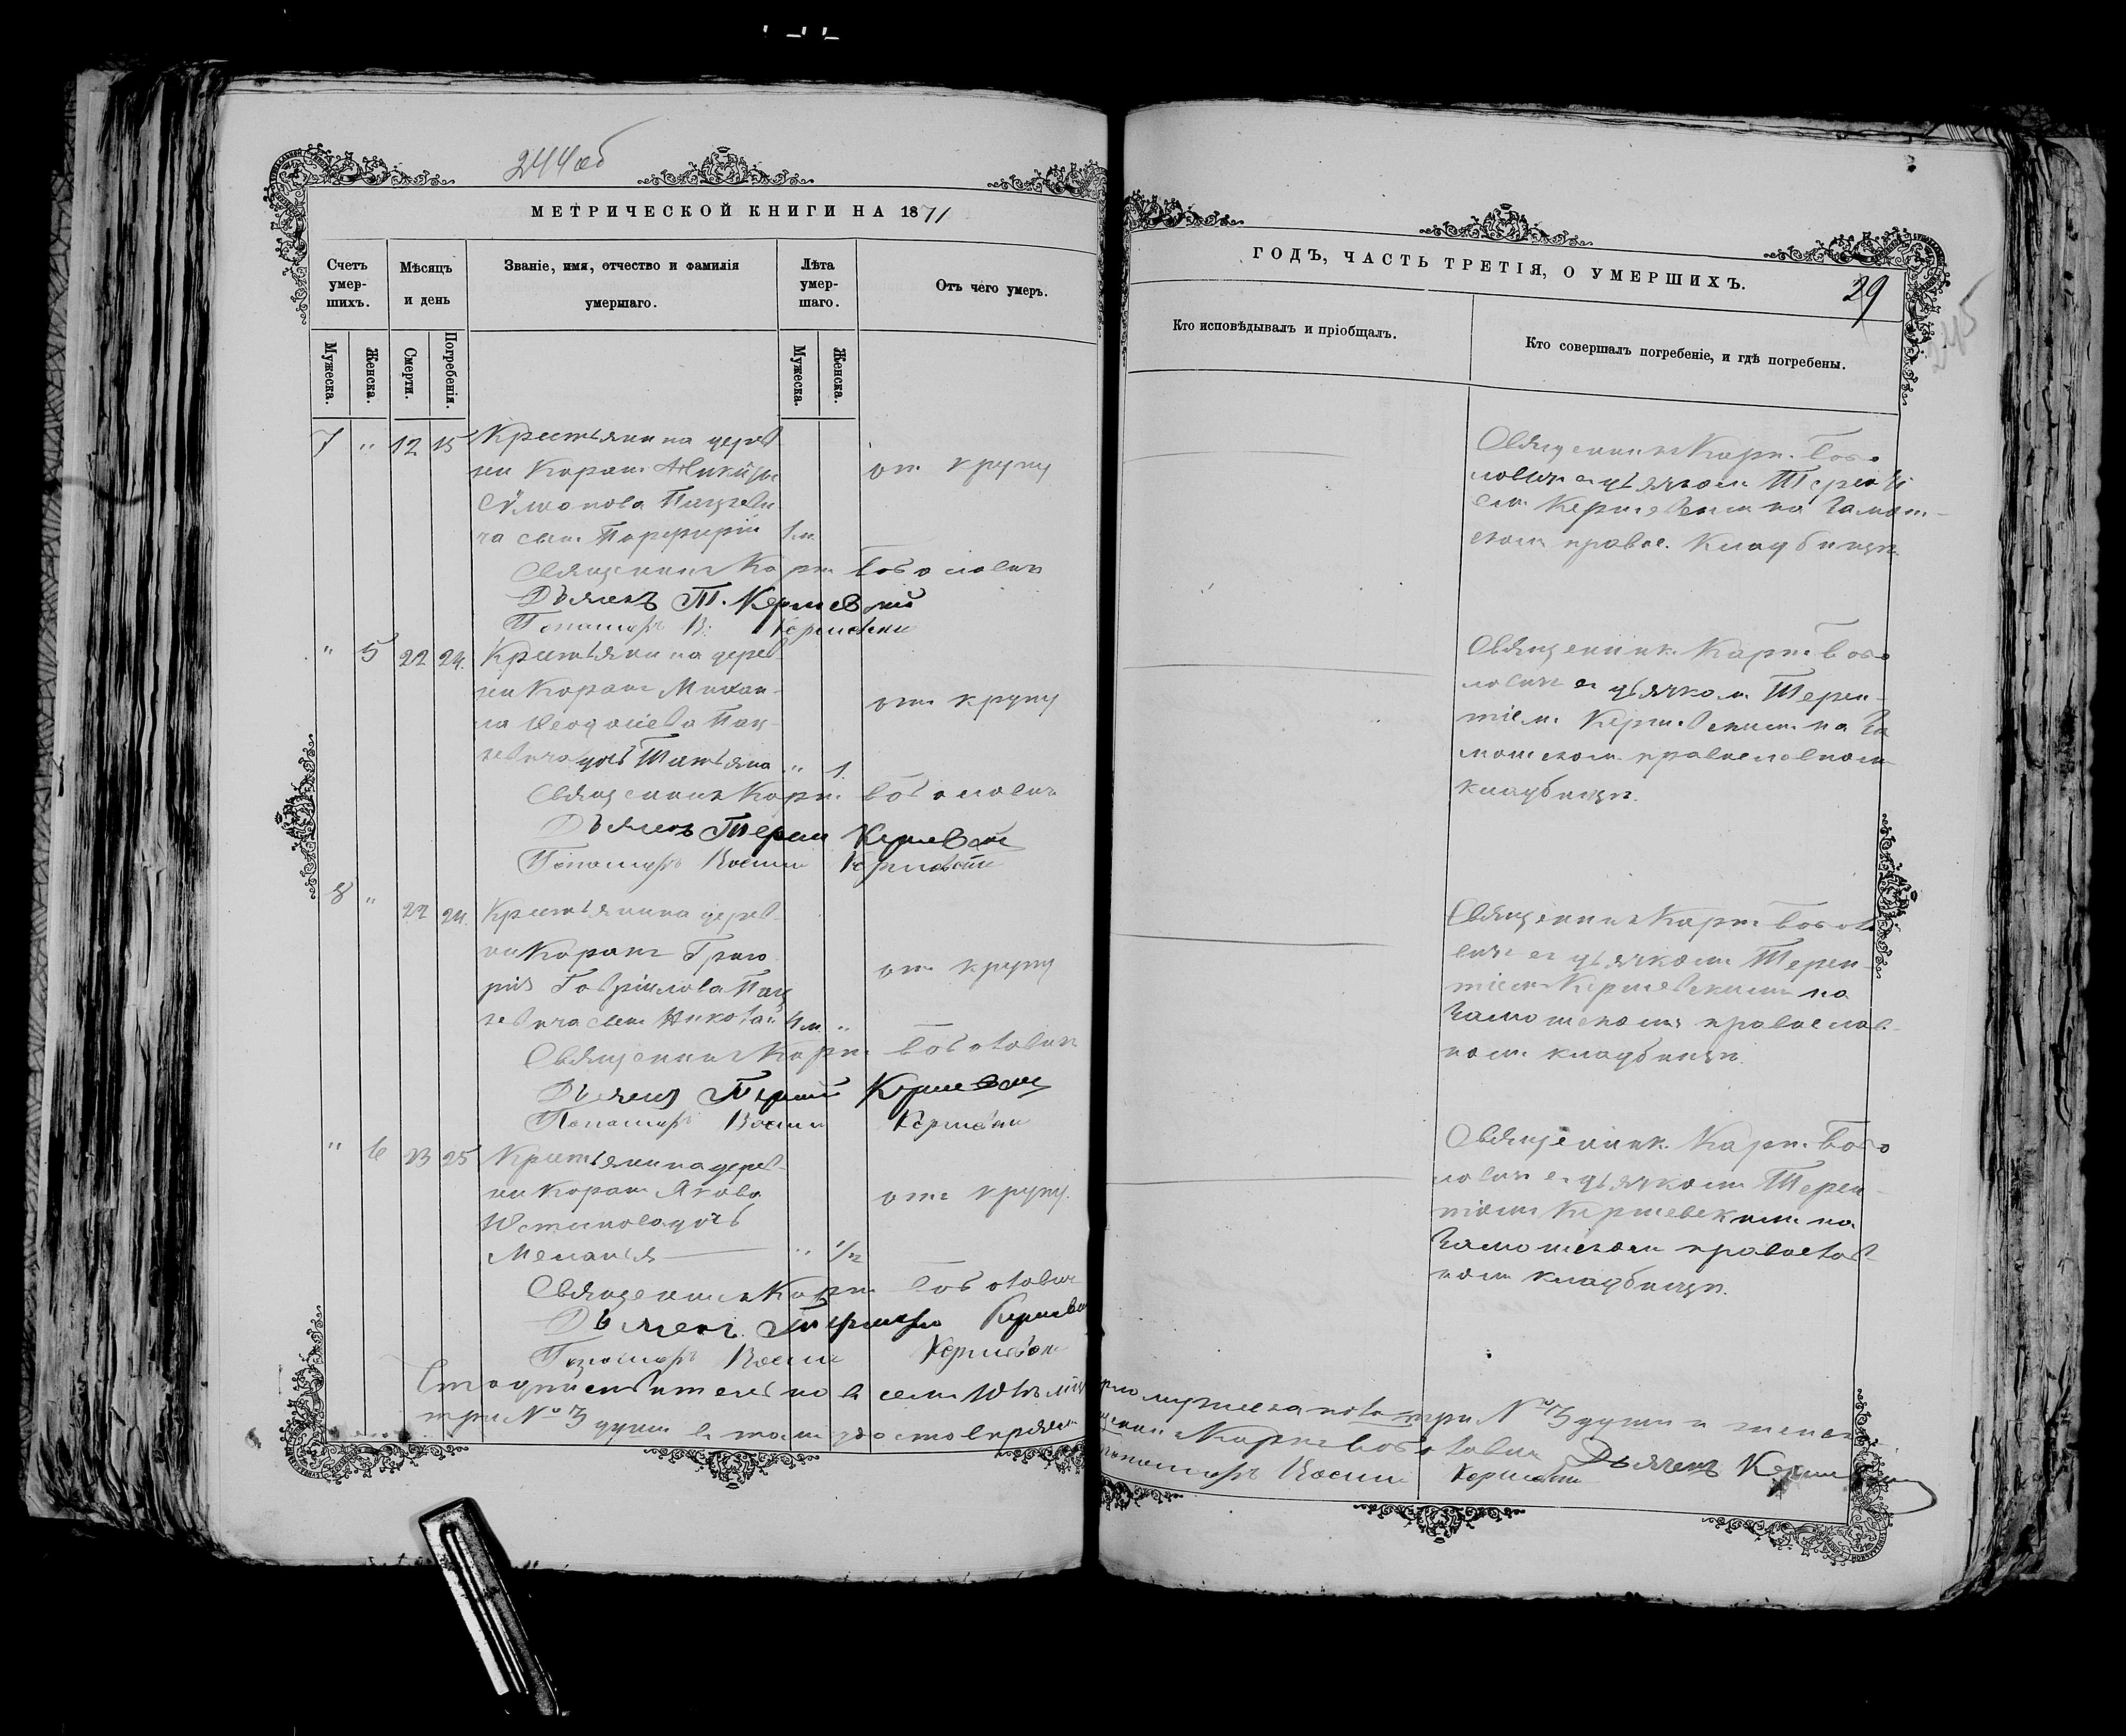 244об
МЕТРИЧЕСКОЙ КНИГИ НА 1871
Счетъ умер-шихъ.
Мѣсяцъ и день
Званіе, имя, отчество и фамилія умершаго.
Лѣта умер-шаго.
Отъ чего умеръ.
Мужеска.
Женска.
Смерти.
Погребенія.
Мужеска.
Женска.
7 " 12 15 Крестьянина дерев
ни Корат Никиты
от крупу
Симонова Пацкеви
ча сын Порфирій 1 м.
Священник Карп Боголович
Дьячекъ Т. Кершевскій
Пономарь К. Кершевскій
" 5 22 24. Крестьянина дерев
ни Корат Михаи-
ла Феодосіева Пац-
от крупу
кевича дочь Татьяна " 1.
Священник Карп Боголович
Дьячекъ Терен Кершевскій
Пономарь Косма Кершевскій
8 " 22 24. Крестьянина дерев-
ни Корат Григо
от крупу
рія Гавріилова Пац
кевича сын Николай 4 м "
Священник Карп Боголович
Дьячекъ Терентій Кершевскій
Пономарь Косма Кершевскій
" 6 23 25 Крестьянина дерев-
ни Корат Якова
от крупу.
Устинова дочь
Меланья " 1/2
Священник Карп Боголович
Дьячекъ Терентій Кершевскій
Пономарь Косма Кершевскій
Что действительно в сем
три № 3 души в том удостоверяем
ГОДЪ, ЧАСТЬ ТРЕТІЯ, О УМЕРШИХЪ.
29
245
Кто исповѣдывалъ и пріобщалъ.
Кто совершалъ погребеніе, и гдѣ погребены.
Священник Карп Бого
лович с дьячком Теренті
ем Кершевским на Замош-
ском правос. кладбищѣ.
Священник Карп Бого
лович с дьячком Терен-
тіем Кершевским на За
мошском православном
кладбищѣ.
Священник Карп Боголо
вич с дьячком Терен-
тіем Кершевским на
Замошском православ-
ном кладбищѣ.
Священник Карп Бого
лович с дьячком Терен-
тіем Кершевским на
Замошском православ-
ном кладбищѣ.
мужеска пола три № 3 души и женск.
Карп Боголович Дьячекъ Кершевскій
Пономарь Косма Кершевскій